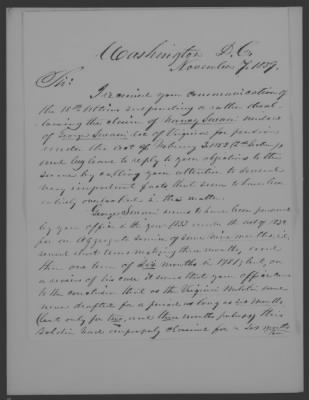 Washington D.C.
November 7, 1859.
Sir:
I received your communication of
the 18th Ultimo suspending or rather disal-
lowing the claim of Nancy Swain widow
of George Swain dec of Virginia for pension
under the act of February 3, 1853 (2nd Section)
and beg leave to reply to your objections to the
same by calling your attention to several
very important facts that seem to have been
entirely overlooked in the matter.
George Swain seems to have been pensioned
by your office in the year 1833 under the act of 1832
for an aggregate service of some nine months, in
several short terms making three months, and
then one term of six months in 1781; but, on
a review of his case it seems that your office came
to the conclusion that as the Virginia Militia was
never drafted for a period as long as six months
(but only for two, and three months perhaps) this
Soldier had improperly claimed for a six months